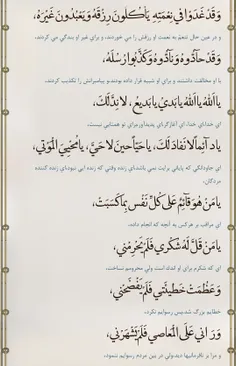 وَقَدْ غَدَوْا فِي نِعْمَتِهِ يَأْكُلُونَ رِزْقَهُ وَيَعْبُدُونَ غَيْرَهُ،
و در عین حال تنعم به نعمت او رزقش را می خوردند، و برای غیر او بندگی می کردند
وَقَدْ حَآدُّوهُ وَنَآدُّوهُ وَكَذَّبُوا رُسُلَهُ،
با او مخالفت داشتند و برای او شبیه قرار داده بودند و پیامبرانش را تکذیب کردند.
يا اَللهُ يا اَللهُ يا بَدِيُ يا بَديعُ، لا نِدَّلَكَ،
ای خدا ای خدا، ای آغازگر ای پدیدآور برای تو همتایی نیست.
يا دآئِماً لا نَفادَ لَكَ، يا حَيّاً حينَ لا حَيَّ، يا مُحْيِيَ الْمَوْتى،
ای جاودانگی که پایانی برایت نمی باشد ای زنده وقتی که زنده ایی نبود ای زنده کننده
مردگان،
يا مَنْ هُوَ قآئِمٌ عَلى كُلِّ نَفْسٍ بِما كَسَبَتْ،
ای مراقب بر هر کس به آنچه که انجام داده.
يا مَنْ قَلَّ لَهُ شُكْري فَلَمْ يَحْرِمْني،
ای که شکرم برای او اندک است ولی محرومم نساخت،
وَعَظُمَتْ خَطيئَتي فَلَمْ يَفْضَحْني،
خطایم بزرگ شد پس رسوایم نکرد.
وَرَاني عَلَى الْمَعاصي فَلَمْ يَشْهَرْني،
و مرا بر نافرمانیها دید ولی در بین مردم رسوایم ننمود.